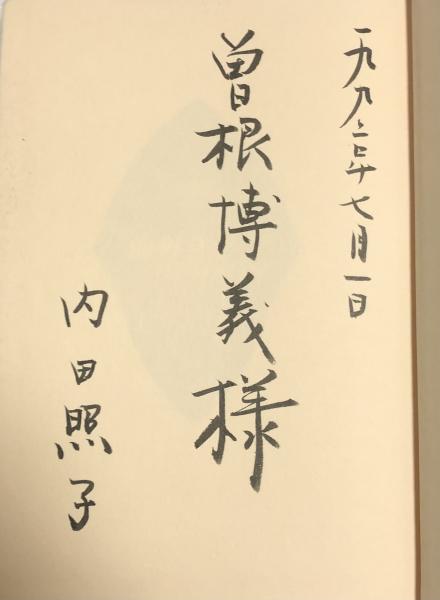 一九九二年七月一日
曽根博義様
内田照子